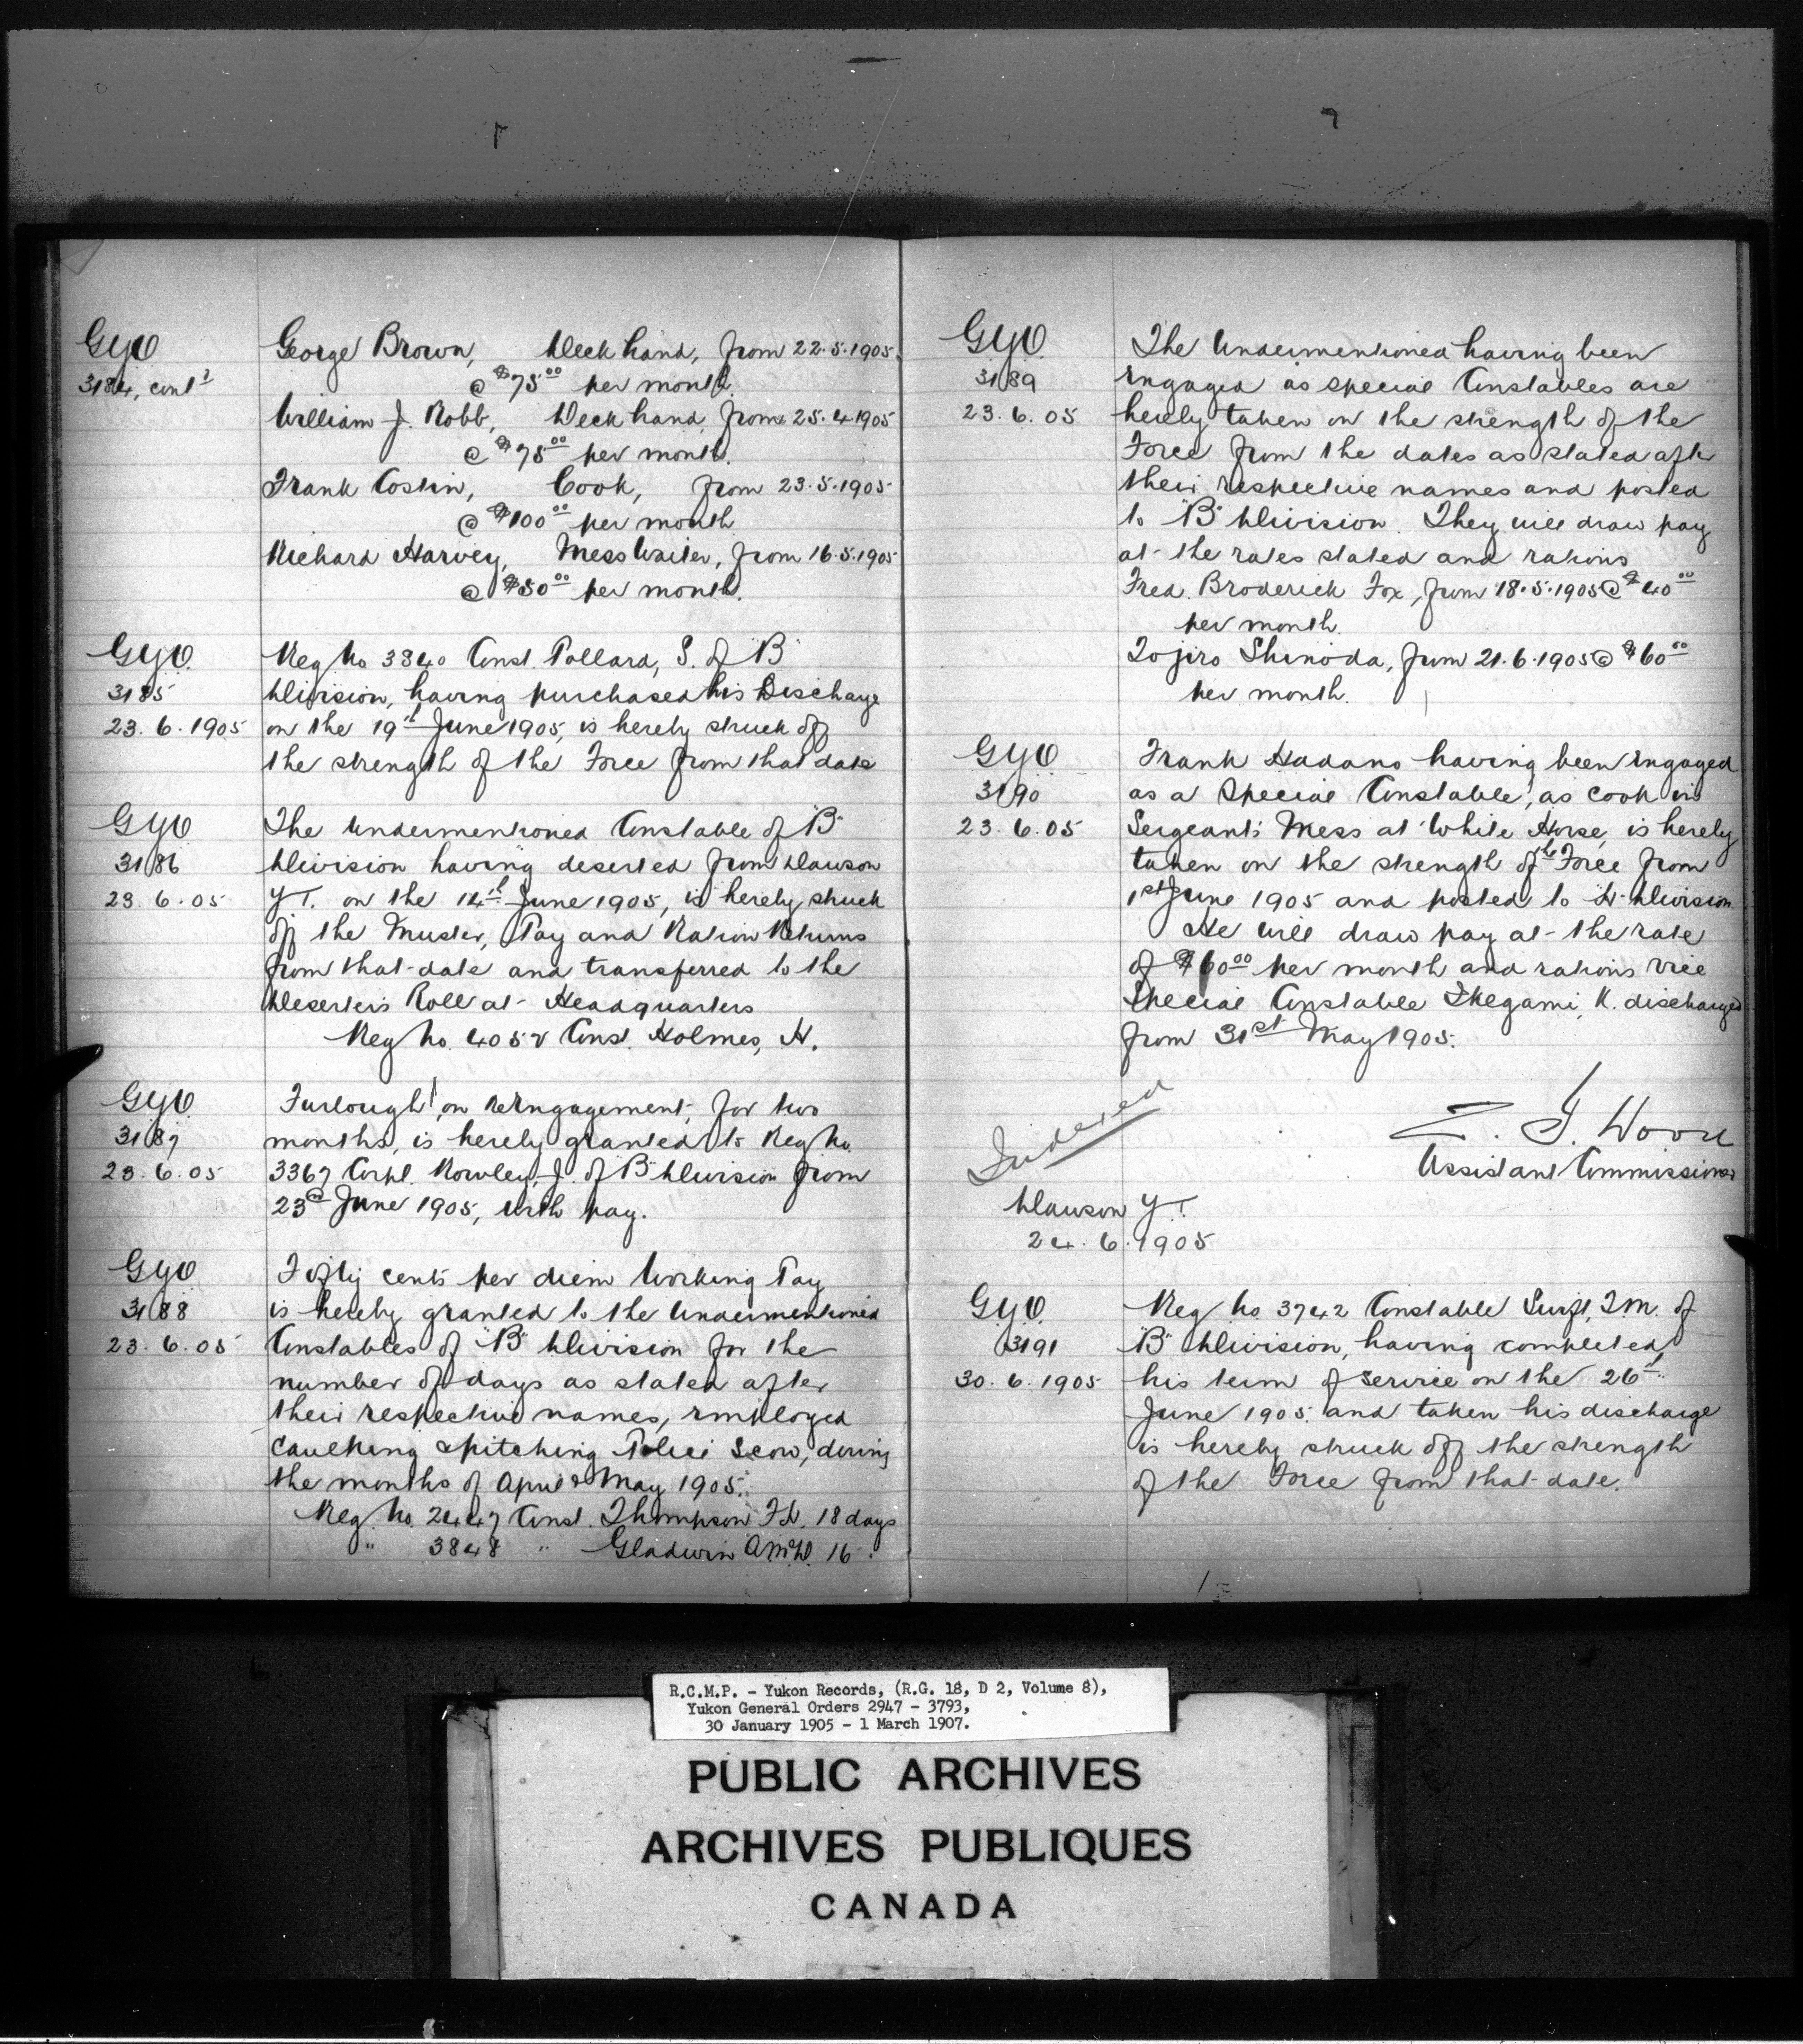 GYO
3184, contd
George Brown, Deck hand, from 22.5.1905
@ $75.00 per month.
William J. Robb, Deck hand, from 25.4.1905
@ $75.00 per month.
Frank Costin, Cook, from 23.5.1905
@ $100.00 per month
Richard Harvey, Mess Waiter, from 16.5.1905
@ $50.00 per month.
GYO
3185
23.6.1905
Reg No 3840 Const. Pollard, S. of "B"
Division, having purchased his Discharge
on the 19th June 1905, is hereby struck off
the strength of the Force from that date
GYO
3186
23.6.05
The undermentioned Constable of "B"
Division having deserted from Dawson
Y.T. on the 14th June 1905, is hereby struck
off the Muster, Pay and Ration Returns
from that date and transferred to the
Deserters Roll at Headquarters
Reg No. 4052 Const. Holmes, H.
GYO
3187
23.6.05
Furlough on reengagement, for two
months, is hereby granted to Reg No.
3367 Corpl. Rowley, J. of "B" Division from
23rd June 1905, with pay.
GYO
3188
23.6.05
Fifty cents per diem Working Pay
is hereby granted to the undermentioned
Constables of "B" Division for the
number of days as stated after
their respective names, employed
caulking & pitching Police Scow, during
the months of April & May 1905.
Reg. No. 2447 Const. Thompson 18 days
" 3848 " Gladwin 16 "
GYO
3189
23.6.05
The undermentioned having been
engaged as special Constables are
hereby taken on the strength of the
Force from the dates as stated after
their respective names and posted
to "B" Division. They will draw pay
at the rates stated and rations
Fred. Broderick Fox, from 18.5.1905 @ $40.00
per month.
Tojiro Shinoda, from 21.6.1905 @ $60.00
per month.
GYO
3190
23.6.05
Frank Hadano having been engaged
as a Special Constable, as cook in
Sergeants' Mess at White Horse, is hereby
taken on the strength of the Force from
1st June 1905 and posted to H. Division.
He will draw pay at the rate
of $60.00 per month and rations vice
Special Constable Ikegami, K. discharged
from 31st May 1905.
Indexed
Z. T. Wood
Assistant Commissioner
Dawson Y.T.
24.6.1905
GYO
3191
30.6.1905
Reg No 3742 Constable Swift, T.M. of
"B" Division, having completed
his term of service on the 26th
June 1905, and taken his discharge
is hereby struck off the strength
of the Force from that date.
R.C.M.P. - Yukon Records, (R.G. 18, D 2, Volume 8),
Yukon General Orders 2947 - 3793,
30 January 1905 - 1 March 1907.
PUBLIC ARCHIVES
ARCHIVES PUBLIQUES
CANADA